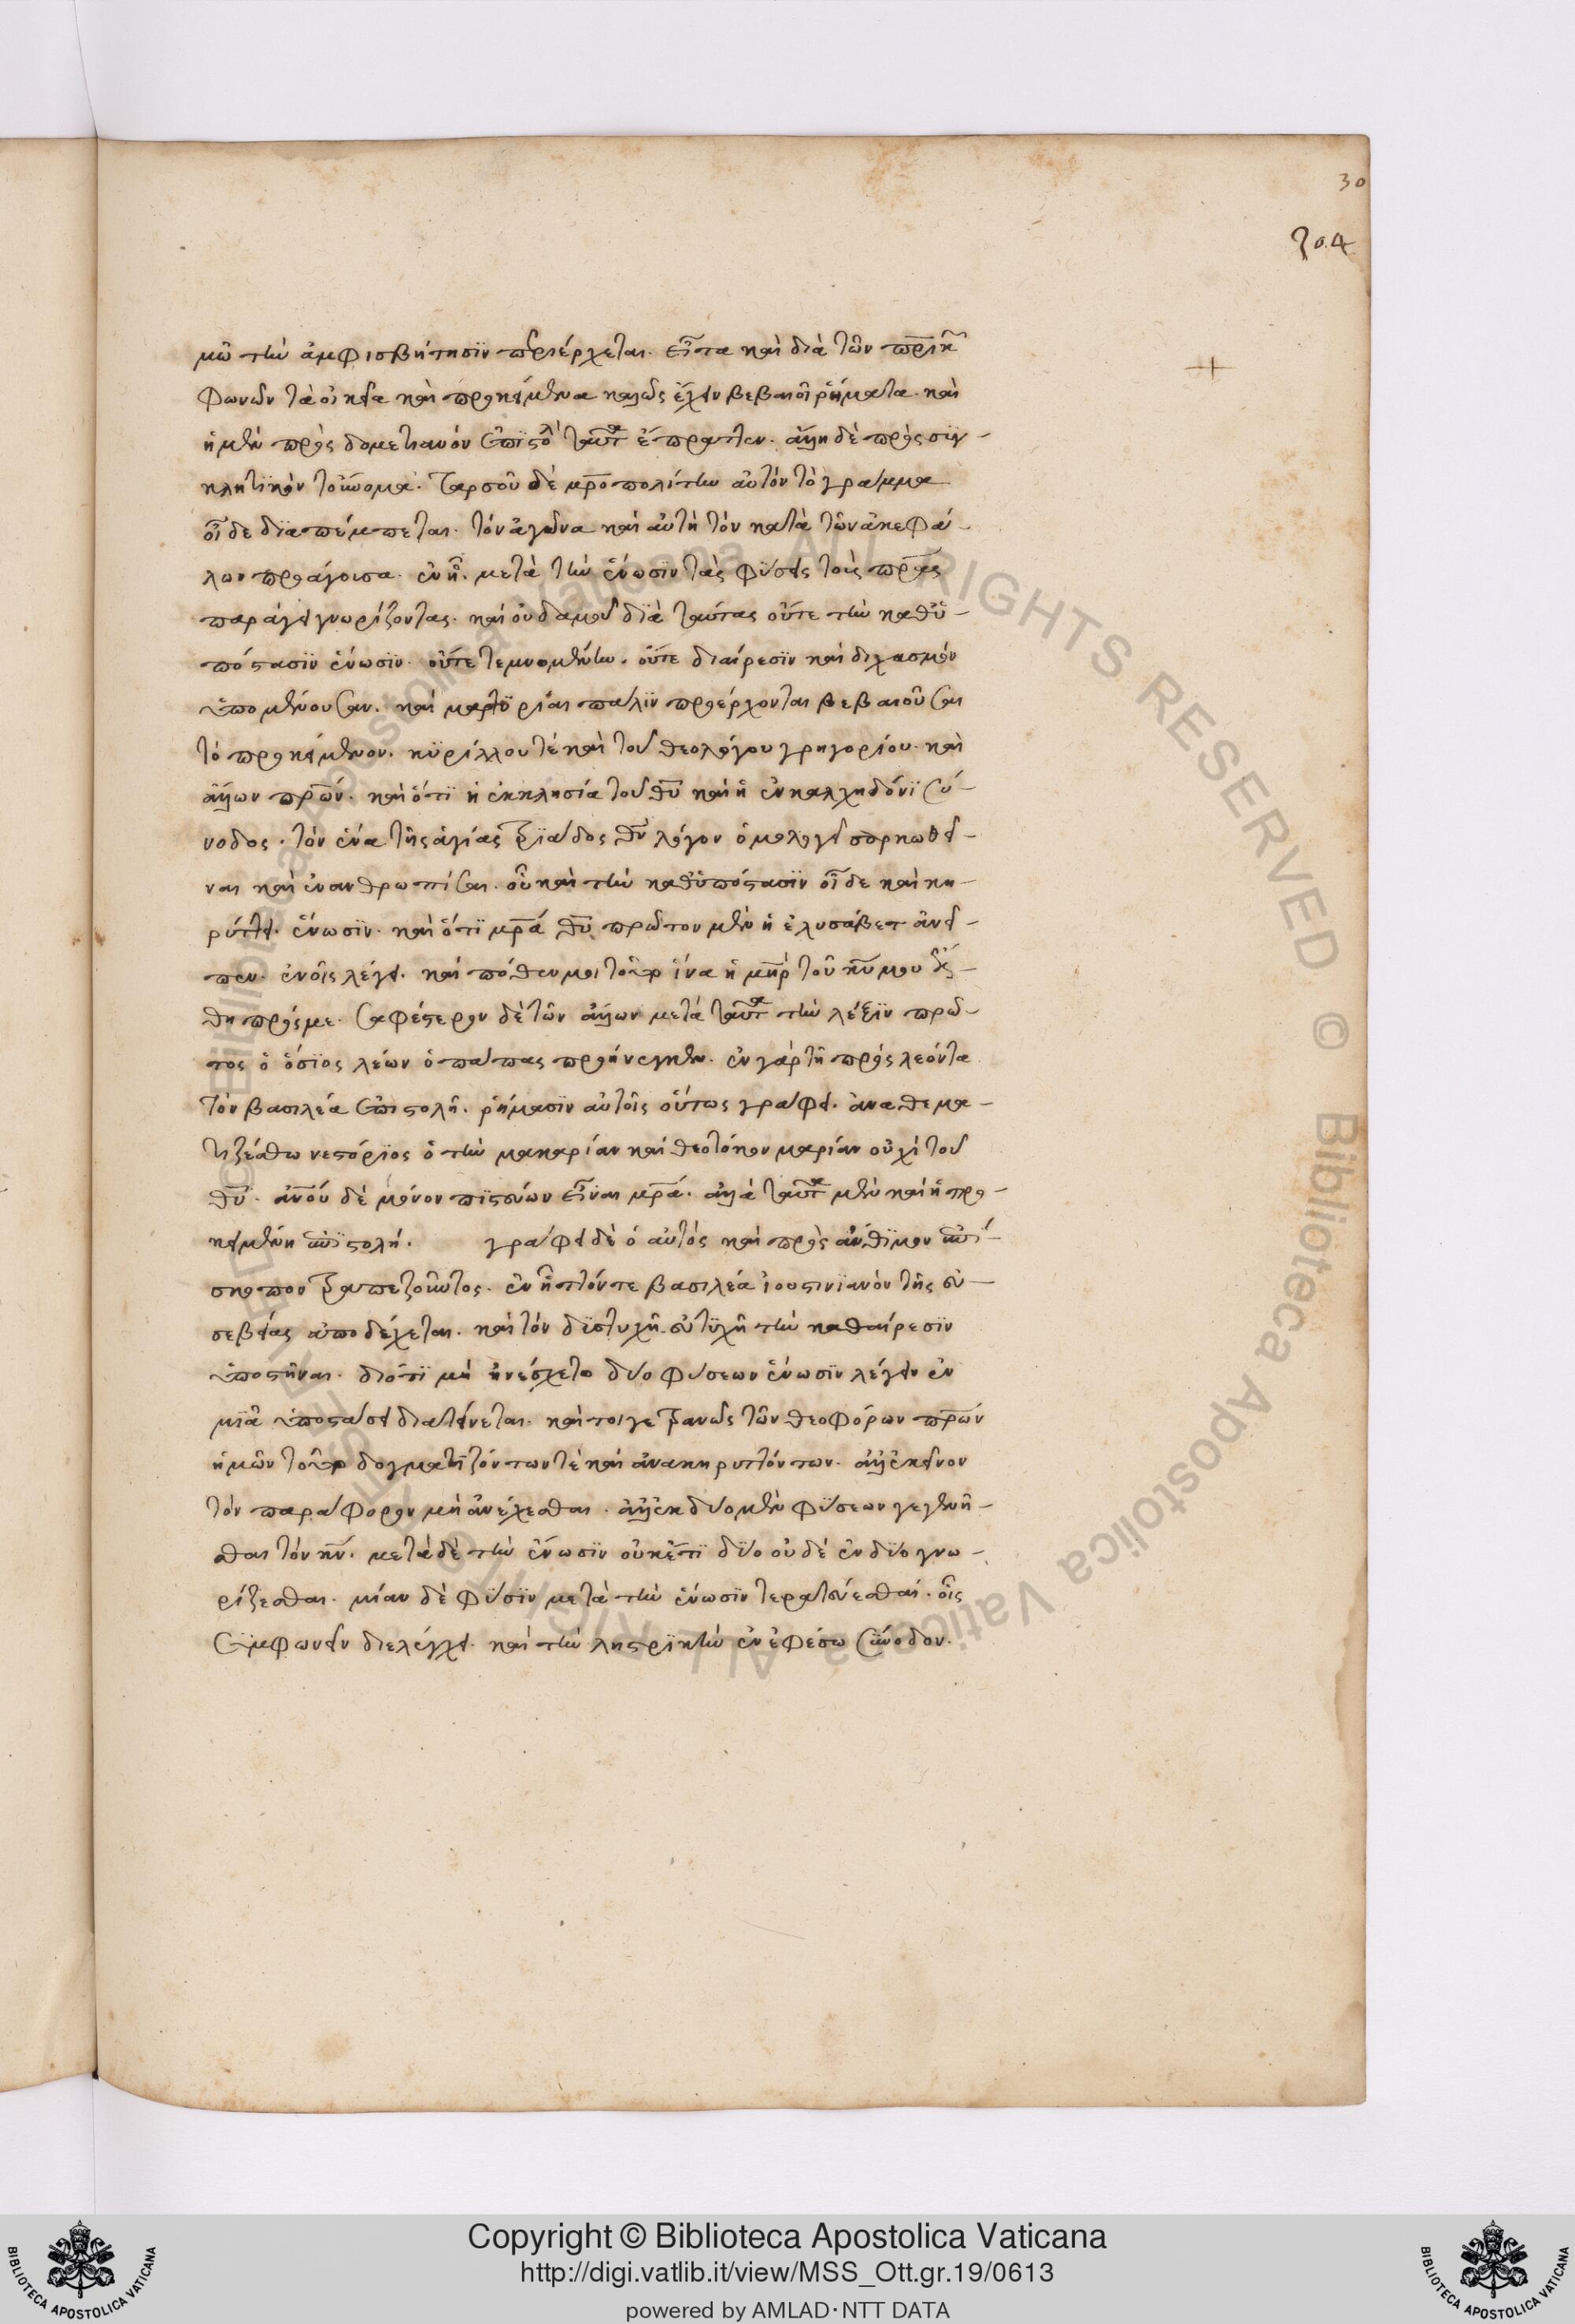 30
304
μῶ τὴν ἀμφισβήτησϊν περιέρχεται. εἶτα καὶ διὰ τῶν πρικῶ
φωνῶν τὰ οἰκεῖα καὶ προκείμενα καλῶς ἔχειν βεβαιοῖ ῥήματα. καὶ
ἡ μὲν πρὸς δομετιανὸν ἐπιστολὴ ταῦτα ἔπραττεν. ἄλλη δὲ πρὸς συγ-
κλητϊκὸν τοὔνομα. ταρσοῦ δὲ μροπολίτην αὐτὸν τὸ γράμμα
οἶδε δϊαπέμπεται. τὸν ἀγῶνα καὶ αὐτὴ τὸν κατὰ τῶν ἀκεφά-
λων προάγουσα. ἐν ἧ. μετὰ τὴν ἕνωσϊν τὰς φύσεις τοὺς πρας
παράγει γνωρίζοντας. καὶ οὐδαμοῦ δϊὰ ταύτας οὔτε τὴν καθϋ-
πόστασϊν ἕνωσϊν. οὔτε τεμνομένην. οὔτε διαίρεσϊν καὶ διχασμὸν
ὑπομένουσαν. καὶ μαρτϋρίαι πάλϊν προέρχονται βεβαιοῦσαι
τὸ προκείμενον. κϋρίλλου τὲ καὶ τοῦ θεολόγου γρηγορίου. καὶ
ἄλλων πρων. καὶ ὅτϊ ἡ ἐκκλησία τοῦ θυ καὶ ἡ ἐν καλχηδόνϊ σύ-
νοδος. τὸν ἕνα τῆς ἁγίας τρϊάδος θν λόγον ὁμολογεῖ σαρκωθεῖ-
ναι καὶ ἐνανθρωπίσαι. οὗ καὶ τὴν καθϋπόστασϊν οἶδε καὶ κη-
ρύττει. ἕνωσϊν. καὶ ὅτϊ μρα θυ πρῶτον μὲν ἡ ἐλυσάβετ ἀνεῖ-
πεν. ἐν οἷς λέγει. καὶ πόθεν μοι τοῦτο ἵνα ἡ μηρ τοῦ κυ μου ἔλ-
θη πρός με. σαφέστερον δὲ τῶν ἄλλων μετὰ ταῦτα τὴν λέξϊν πρῶ-
τος ὁ ὅσϊος λέων ὁ πάπας προήνεγκεν. ἐν γὰρ τῆ πρὸς λεόντα
τὸν βασιλέα ἐπιστολῆ. ῥήμασϊν αὐτοῖς οὕτως γράφει. ἀναθεμα-
τιζέσθω νεστόρϊος ὁ τὴν μακαρίαν καὶ θεοτόκον μαρίαν οὐχὶ τοῦ
θυ. ανου δὲ μόνον πϊστεύων εἶναι μρα. ἀλλὰ ταῦτα μὲν καὶ ἡ προ-
κειμένη ἐπϊστολή. γράφει δὲ ὁ αὐτὸς καὶ πρὸς ἄνθϊμον ἐπί-
σκοπον τραπεζοῦντος. ἐν ἧ τόν τε βασιλέα ἰουστινϊανὸν τῆς εὐ-
σεβείας ἀποδέχεται. καὶ τὸν δϋστυχῆ εὐτϋχῆ τὴν καθαίρεσϊν
ὑποστῆναι. διότϊ μὴ ἠνέσχετο δύο φύσεων ἕνωσϊν λέγειν ἐν
μϊᾶ ὑποστάσει διατείνεται. καὶ τοιγε τρανῶς τῶν θεοφόρων πρων
ἡμῶν τοῦτο δογματϊζόντων τὲ καὶ ἀνακηρυττόντων. ἀλλ' ἐκεῖνον
τὸν παράφορον μὴ ἀνέχεσθαι. ἀλλ' ἐκ δύο μὲν φύσεων γεγενῆ-
σθαι τὸν κν. μετὰ δὲ τὴν ἕνωσϊν οὐκέτϊ δύο οὐδὲ ἐν δύο γνω-
ρίζεσθαι. μίαν δὲ φύσϊν μετὰ τὴν ἕνωσϊν τερατεύεσθαι. οἷς
συμφωνεῖν διελέγχει. καὶ τὴν ληστρϊκὴν ἐν ἐφέσω σύνοδον.
Copyright © Biblioteca Apostolica Vaticana
http://digi.vatlib.it/view/MSS_Ott.gr.19/0613
powered by AMLAD·NTT DATA